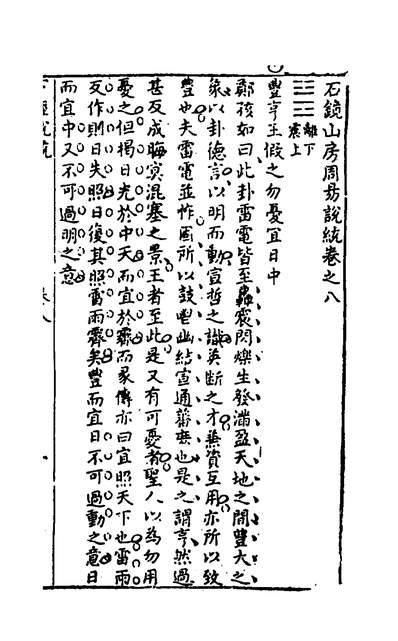 石鏡山房周易說統卷之八
離下
震上
豐亨王假之勿憂宜日中
鄭孩如曰此卦雷電皆至轟震閃爍生發滿盈天地之間豐大之
象以卦德言以明而動宣哲之識英斷之才兼資互用亦所以致
豐也夫雷電並作固所以鼓鬯幽結宣通蕃橆也是之謂亨然過
甚反成晦冥混塞之景王者至此是又有可憂者聖人以為勿用
憂之但揭日光於中天而宜於霽而彖傳亦曰宜照天下也雷雨
交作則日失照日復其照雷雨霽矣豐而宜日不可過動之意日
而宜中又不可過明之意
卷八